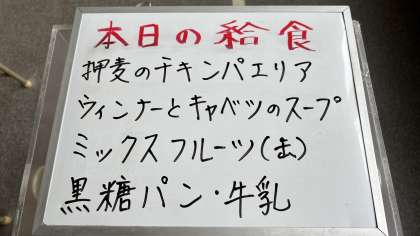 本日の給食
押麦のチキンパエリア
ウィンナーとキャベツのスープ
ミックスフルーツ(缶)
黒糖パン・牛乳